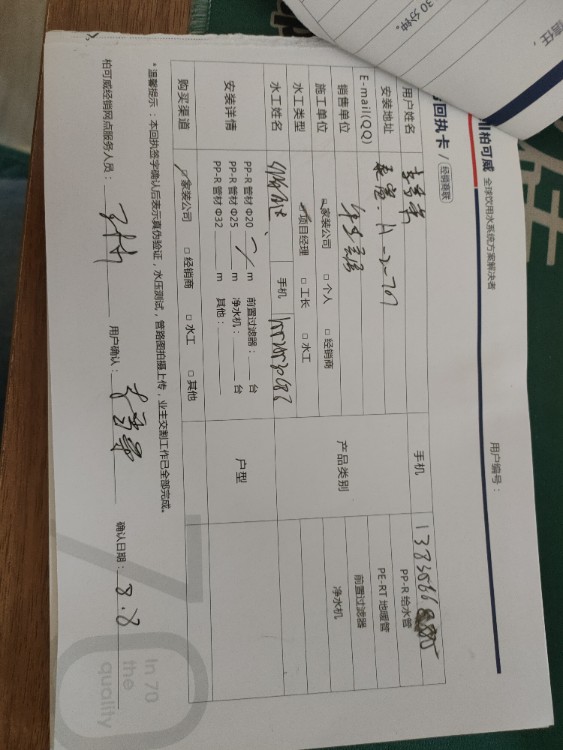 30 分钟。
责任，
柏可威 全球饮用水系统方案解决者
回执卡 / 经销商联
用户编号：
用户姓名
手机
安装地址 A-2-701
E-mail(QQ)
销售单位
产品类别
PP-R 给水管
PE-RT 地暖管
前置过滤器
净水机
施工单位 家装公司 □ 个人 □ 经销商
水工类型 项目经理 □ 工长 □ 水工
水工姓名 手机
安装详情
PP-R 管材 Φ20 m 前置过滤器： 台
PP-R 管材 Φ25 m 净水机： 台
PP-R 管材 Φ32 m 其他：
户型
购买渠道 家装公司 □ 经销商 □ 水工 □ 其他
*温馨提示：本回执签字确认后表示真伪验证，水压测试，管路图拍摄上传，业主交割工作已全部完成。
柏可威经销网点服务人员： 用户确认： 确认日期：8.8
In 70
the
quality
70